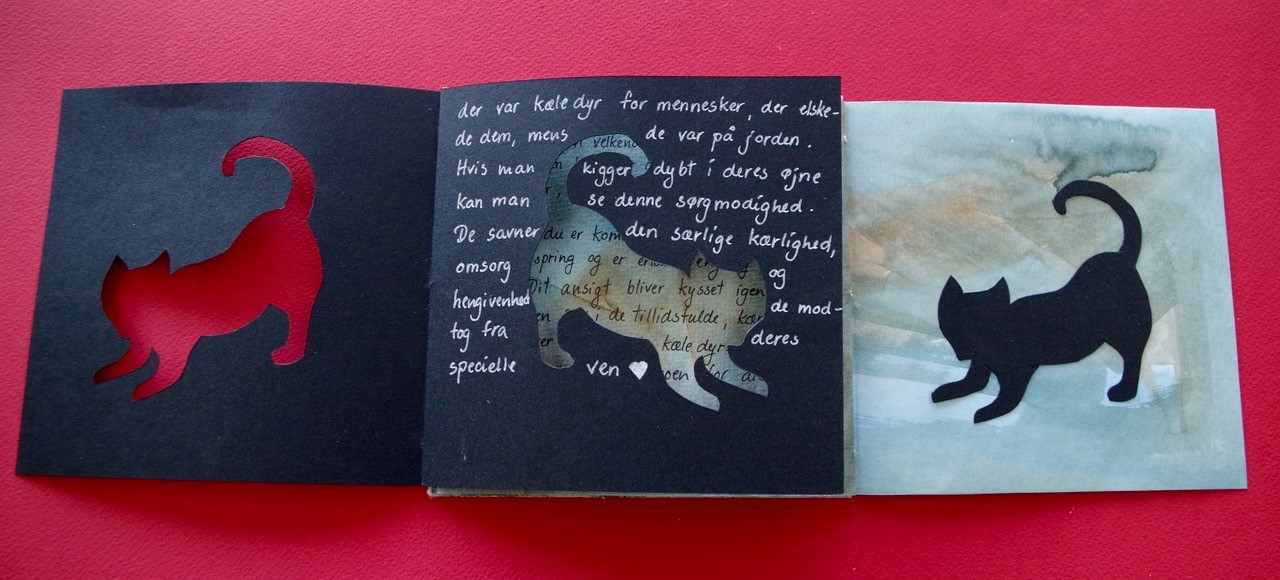 der var kæledyr for mennesker, der elske-
de dem, mens de var på jorden.
velkend
Hvis man kigger dybt i deres øjne
kan man se denne sørgmodighed.
De savner den særlige kærlighed,
du er kom
spring og er
omsorg og
Dit ansigt bliver kysset igen
hengivenhed de mod-
i de tillidsfulde,
tog fra deres
kæledyr
specielle ven ♥